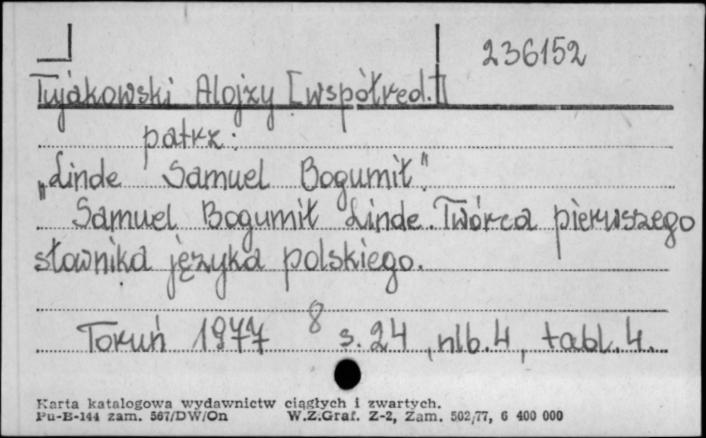 236152
Tujakowski Alojzy [współred.]
patrz:
„Linde Samuel Bogumił".
Samuel Bogumił Linde. Twórca pierwszego
słownika języka polskiego.
Toruń 1977 8 s. 24, nlb. 4, tabl. 4.
Karta katalogowa wydawnictw ciągłych i zwartych.
Pu-B-144 zam. 567/DW/On W.Z.Graf. Z-2, Zam. 502/77, 6 400 000